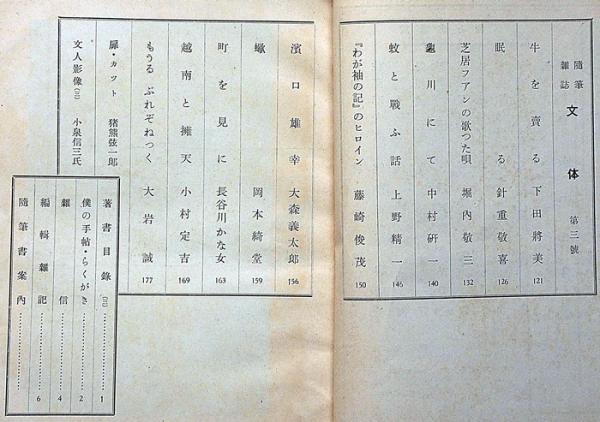 隨筆雜誌 文体 第三號
牛を賣る 下田將美 121
眠る 針重敬喜 126
芝居フアンの歌つた唄 堀内敬三 132
龜川にて 中村研一 140
蚊と戰ふ話 上野精一 146
『わが袖の記』のヒロイン 藤崎俊茂 150
濱口雄幸 大森義太郎 156
蠍 岡本綺堂 159
町を見に 長谷川かな女 163
越南と擁天 小村定吉 169
もうるぶれぞねつく 大岩誠 177
扉・カツト 猪熊弦一郎
文人影像(三) 小泉信三氏
著書目錄(三)…………1
僕の手帖・らくがき…………2
雜信…………4
編輯雜記…………6
隨筆書案内…………